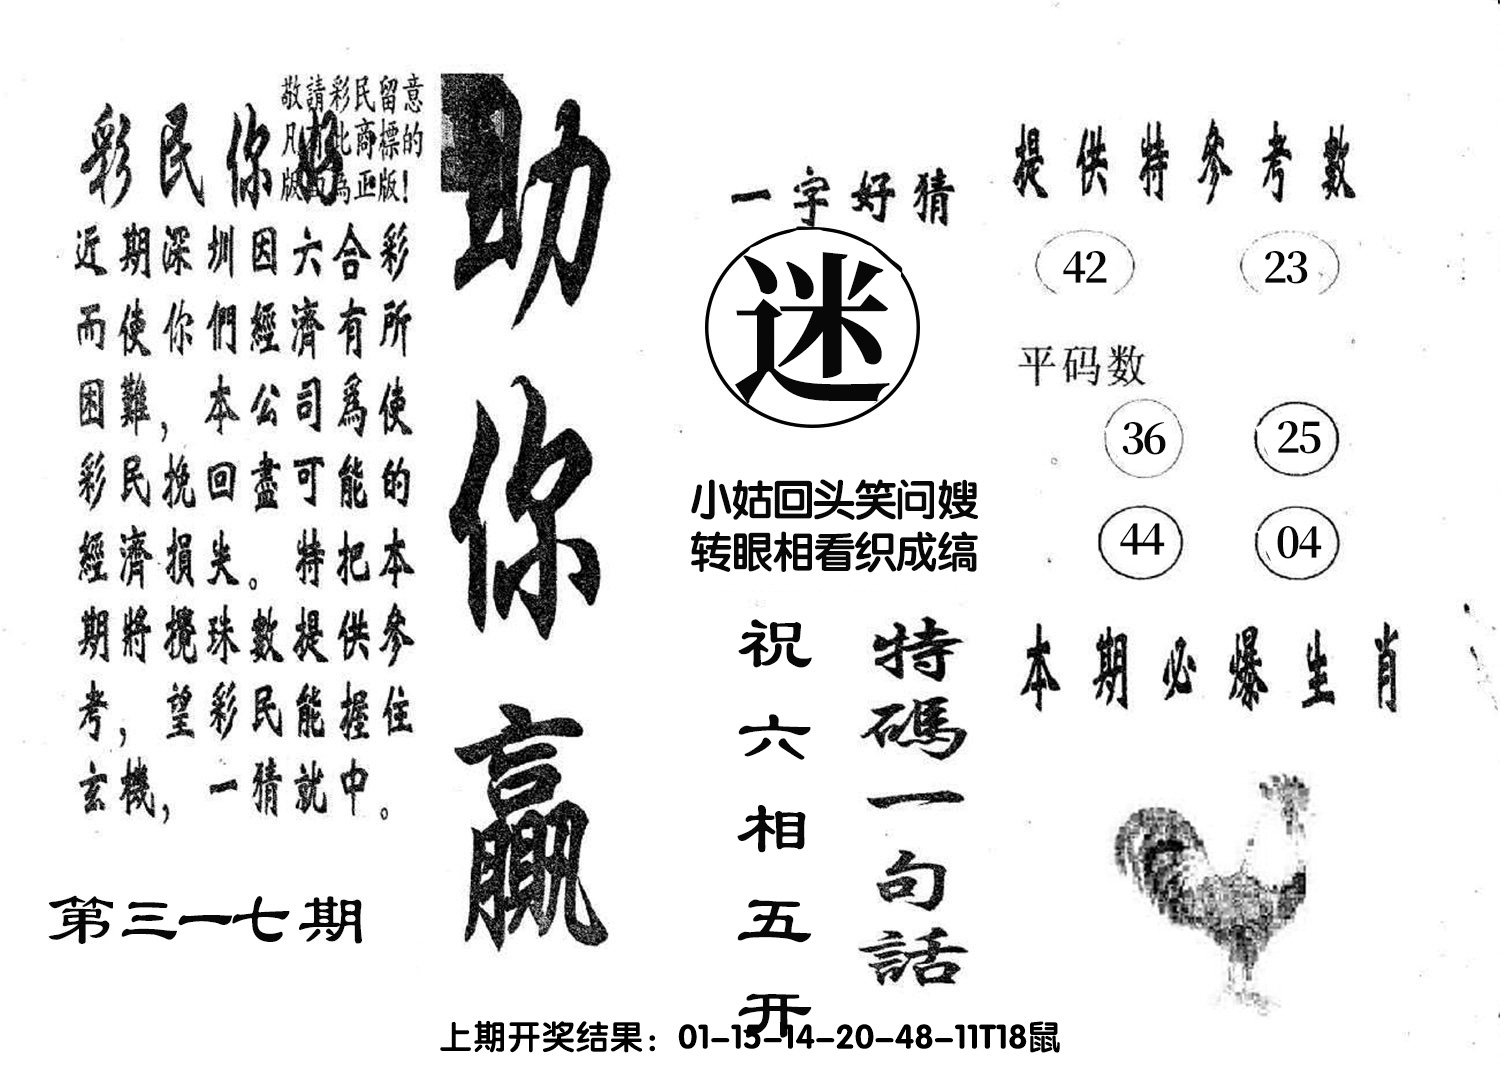 敬請彩民留意
凡有此商標的
版面為正版!
彩民你好
近期深圳因六合彩
而使你們經濟有所
困難，本公司爲使
彩民挽回盡可能的
經濟損失。特把本
期將攪珠數提供參
考，望彩民能握住
玄機，一猜就中。
第三一七期
助你贏
一字好猜
迷
小姑回头笑问嫂
转眼相看织成缟
特碼一句話
祝六相五开
提供特參考數
42 23
平码数
36 25
44 04
本期必爆生肖
上期开奖结果：01-15-14-20-48-11T18鼠